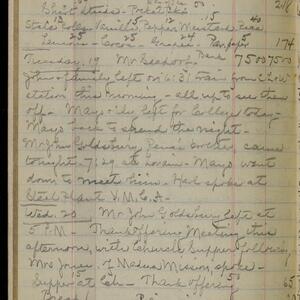 Short Steaks - Potatoes 218
Vanilla Pepper Mustard
Lemons - Cocoa - Grapes - 174
Tuesday, 19 Mr Deadorf Bank 7500 7500
John & family left on 6:31 train from
station this morning - all up to see them
off. Mayo's ily left for College today -
Mayo back to spend the night -
Mr John Goldsbury Rena's brother came
tonight - 7:29 at Lorain - Mayo went
down to meet him. Had spoke at
Steel Plant Y.M.C.A.
Wed. 20 Mr John Goldsbury left at
5 P.M. - Thankoffering Meeting this
afternoon, with Church Supper following
Mrs Jones of Madura Mission, spoke -
Supper at Ch - Thank offering 65
Bread